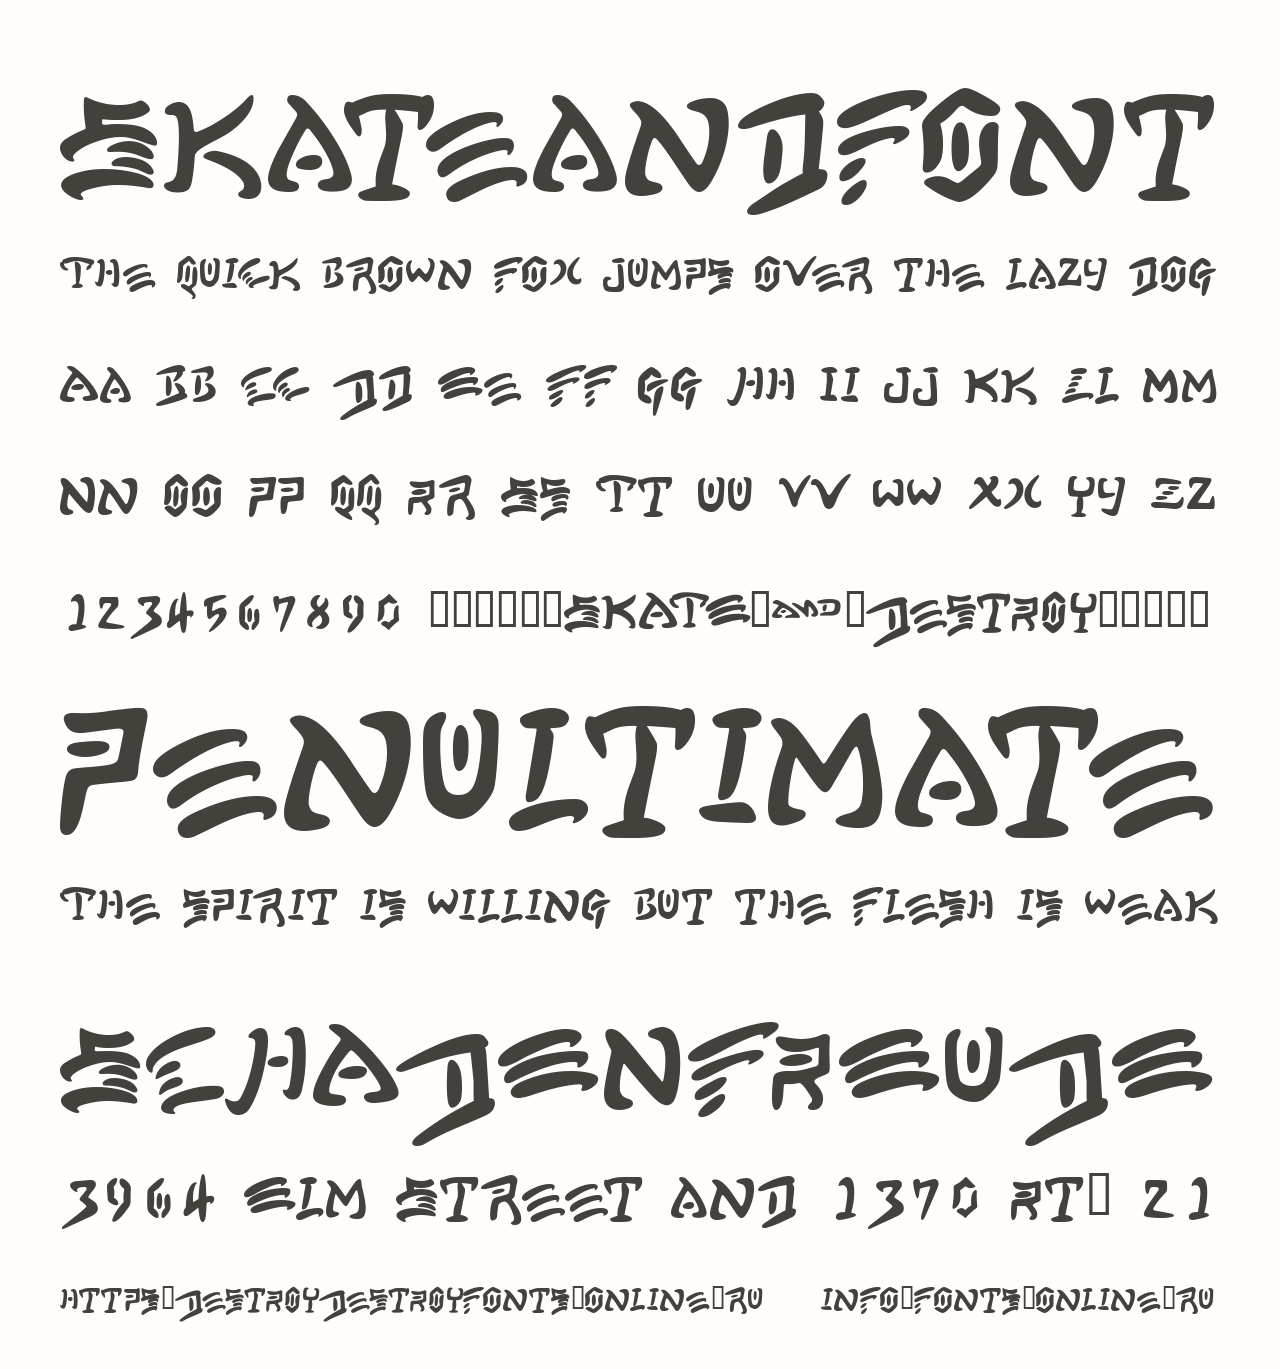 SKATEANDFONT
THE QUICK BROWN FOX JUMPS OVER THE LAZY DOG
AA BB CC DD EE FF GG HH II JJ KK LL MM
NN OO PP QQ RR SS TT UU VV WW XX YY ZZ
1 2 3 4 5 6 7 8 9 0 ▯▯▯▯▯▯SKATE▯AND▯DESTROY▯▯▯▯▯
PENULTIMATE
THE SPIRIT IS WILLING BUT THE FLESH IS WEAK
SCHADENFREUDE
3964 ELM STREET AND 1370 RT▯ 21
HTTPS▯DESTROYDESTROYFONTS▯ONLINE▯RU INFO▯FONTS▯ONLINE▯RU